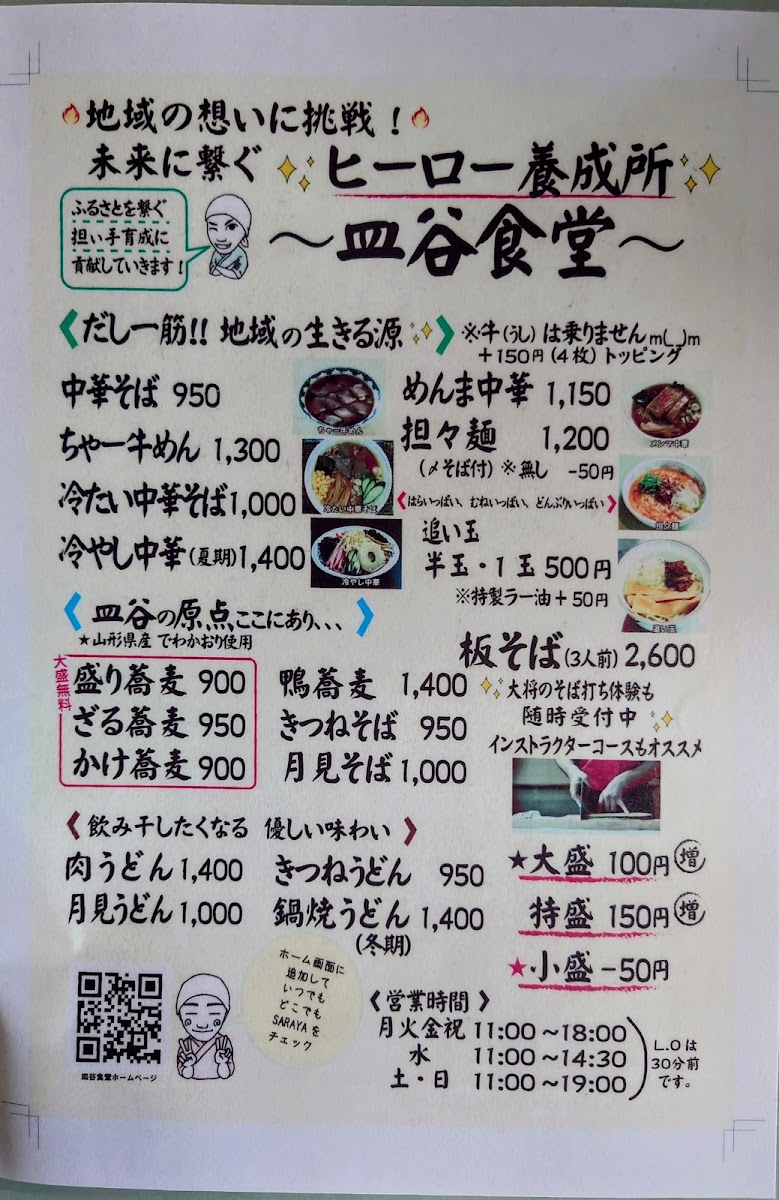 地域の想いに挑戦！
未来に繋ぐ
ヒーロー養成所
～皿谷食堂～
ふるさとを繋ぐ
担い手育成に
貢献していきます！
《だし一筋!! 地域の生きる源》
※牛(うし)は乗りませんm(_)m
＋150円(4枚)トッピング
中華そば 950
ちゃー牛めん 1,300
冷たい中華そば 1,000
冷やし中華(夏期) 1,400
ちゃー牛めん
冷たい中華そば
冷やし中華
めんま中華 1,150
担々麺 1,200
(〆そば付) ※無し -50円
《はらいっぱい、むねいっぱい、どんぶりいっぱい》
追い玉
半玉・1玉 500円
※特製ラー油＋50円
メンマ中華
担々麺
追い玉
《皿谷の原点ここにあり、、、》
★山形県産 でわかおり使用
大盛無料
盛り蕎麦 900
ざる蕎麦 950
かけ蕎麦 900
鴨蕎麦 1,400
きつねそば 950
月見そば 1,000
板そば(3人前) 2,600
大将のそば打ち体験も
随時受付中
インストラクターコースもオススメ
《飲み干したくなる 優しい味わい》
肉うどん 1,400
月見うどん 1,000
きつねうどん 950
鍋焼うどん 1,400
(冬期)
★大盛 100円 増
特盛 150円 増
★小盛 -50円
皿谷食堂ホームページ
ホーム画面に
追加して
いつでも
どこでも
SARAYAを
チェック
《営業時間》
月火金祝 11:00～18:00
水 11:00～14:30
土・日 11:00～19:00
L.Oは
30分前
です。